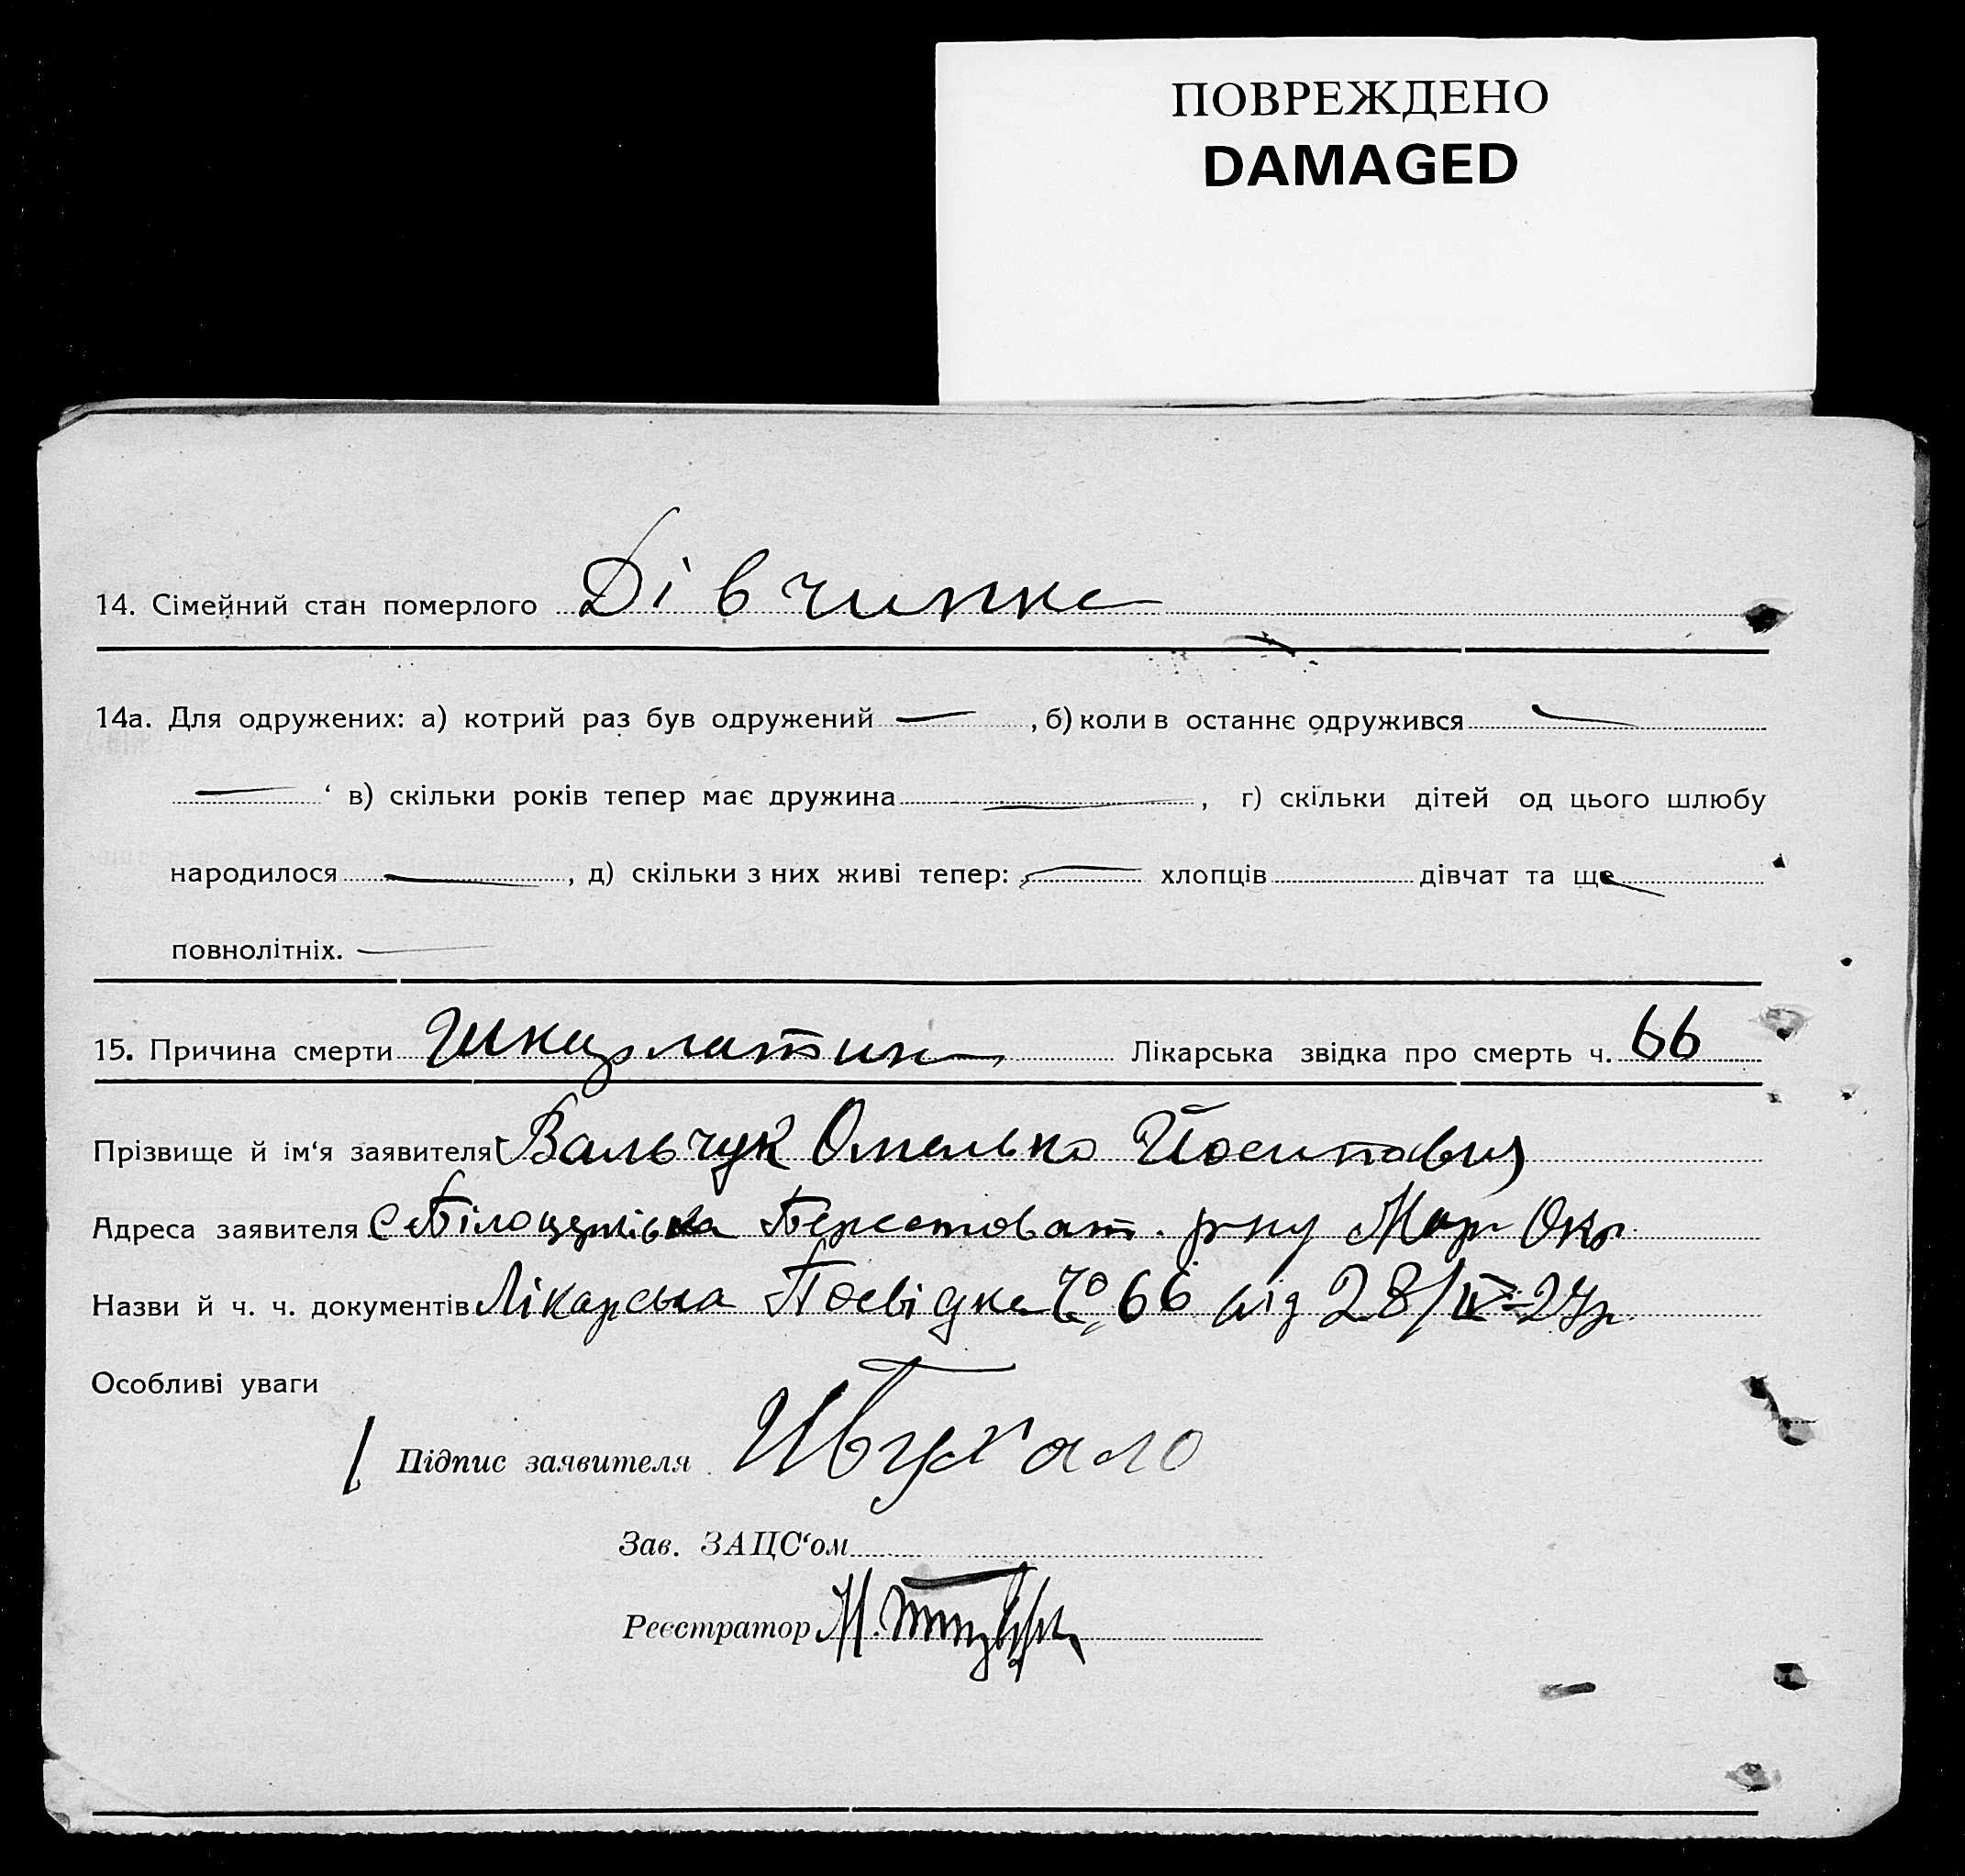 ПОВРЕЖДЕНО
DAMAGED
14. Сімейний стан померлого Дівчинка
14а. Для одружених: а) котрий раз був одружений — , б) коли в останнє одружився —
— ‘ в) скільки років тепер має дружина — , г) скільки дітей од цього шлюбу
народилося — , д) скільки з них живі тепер: — хлопців дівчат та ще —
повнолітніх. —
15. Причина смерти Шкарлатина Лікарська звідка про смерть ч. 66
Прізвище й ім‘я заявителя Вальчук Омелько Йосипович
Адреса заявителя с Білоцерківка Берестоват. р-ну Мар Окр.
Назви й ч. ч. документів Лікарська Посвідка Ч 66 від 28/IV-27р.
Особливі уваги
Підпис заявителя
Зав. ЗАЦС‘ом
Реєстратор